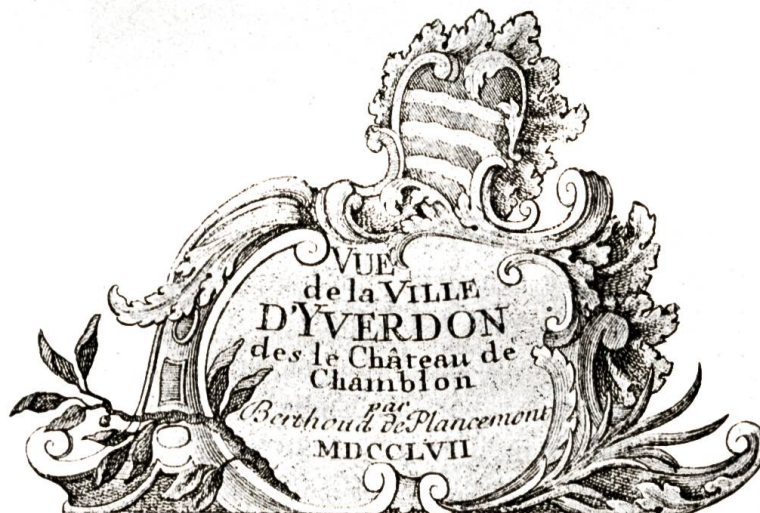 VUE
de la VILLE
D'YVERDON
des le Château de
Chamblon
par
Berthoud de Plancemont
MDCCLVII